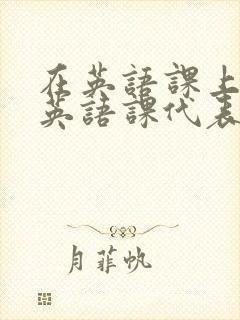 在英語課上
英語課代表
月菲帆